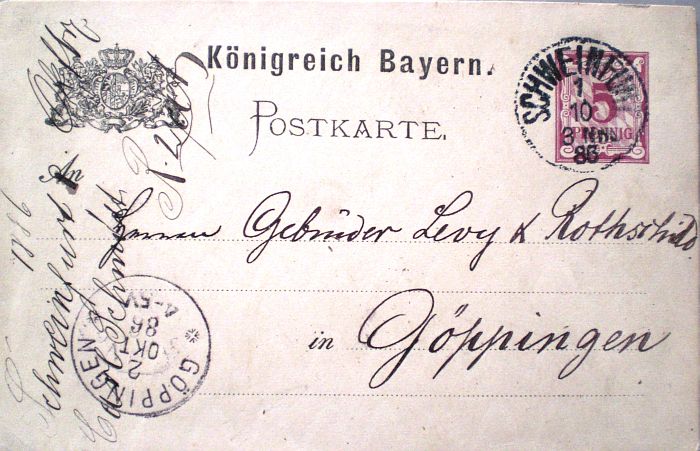 Königreich Bayern.
POSTKARTE.
SCHWEINFURT
1
10
8 Nm
86
5
PFENNIG
An
Herren Gebrüder Levy & Rothschild
in Göppingen
GÖPPINGEN
2
OKT
86
4-5V
1886
Schweinfurt
Schmidt